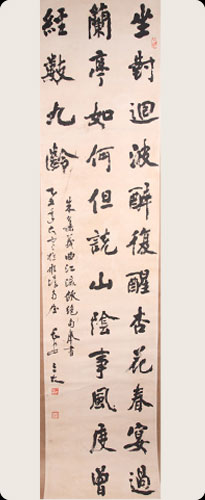 坐對迴波醉復醒杏花春宴過
蘭亭如何但說山陰事風度曾
經數九齡
朱集義曲江流飲絕句